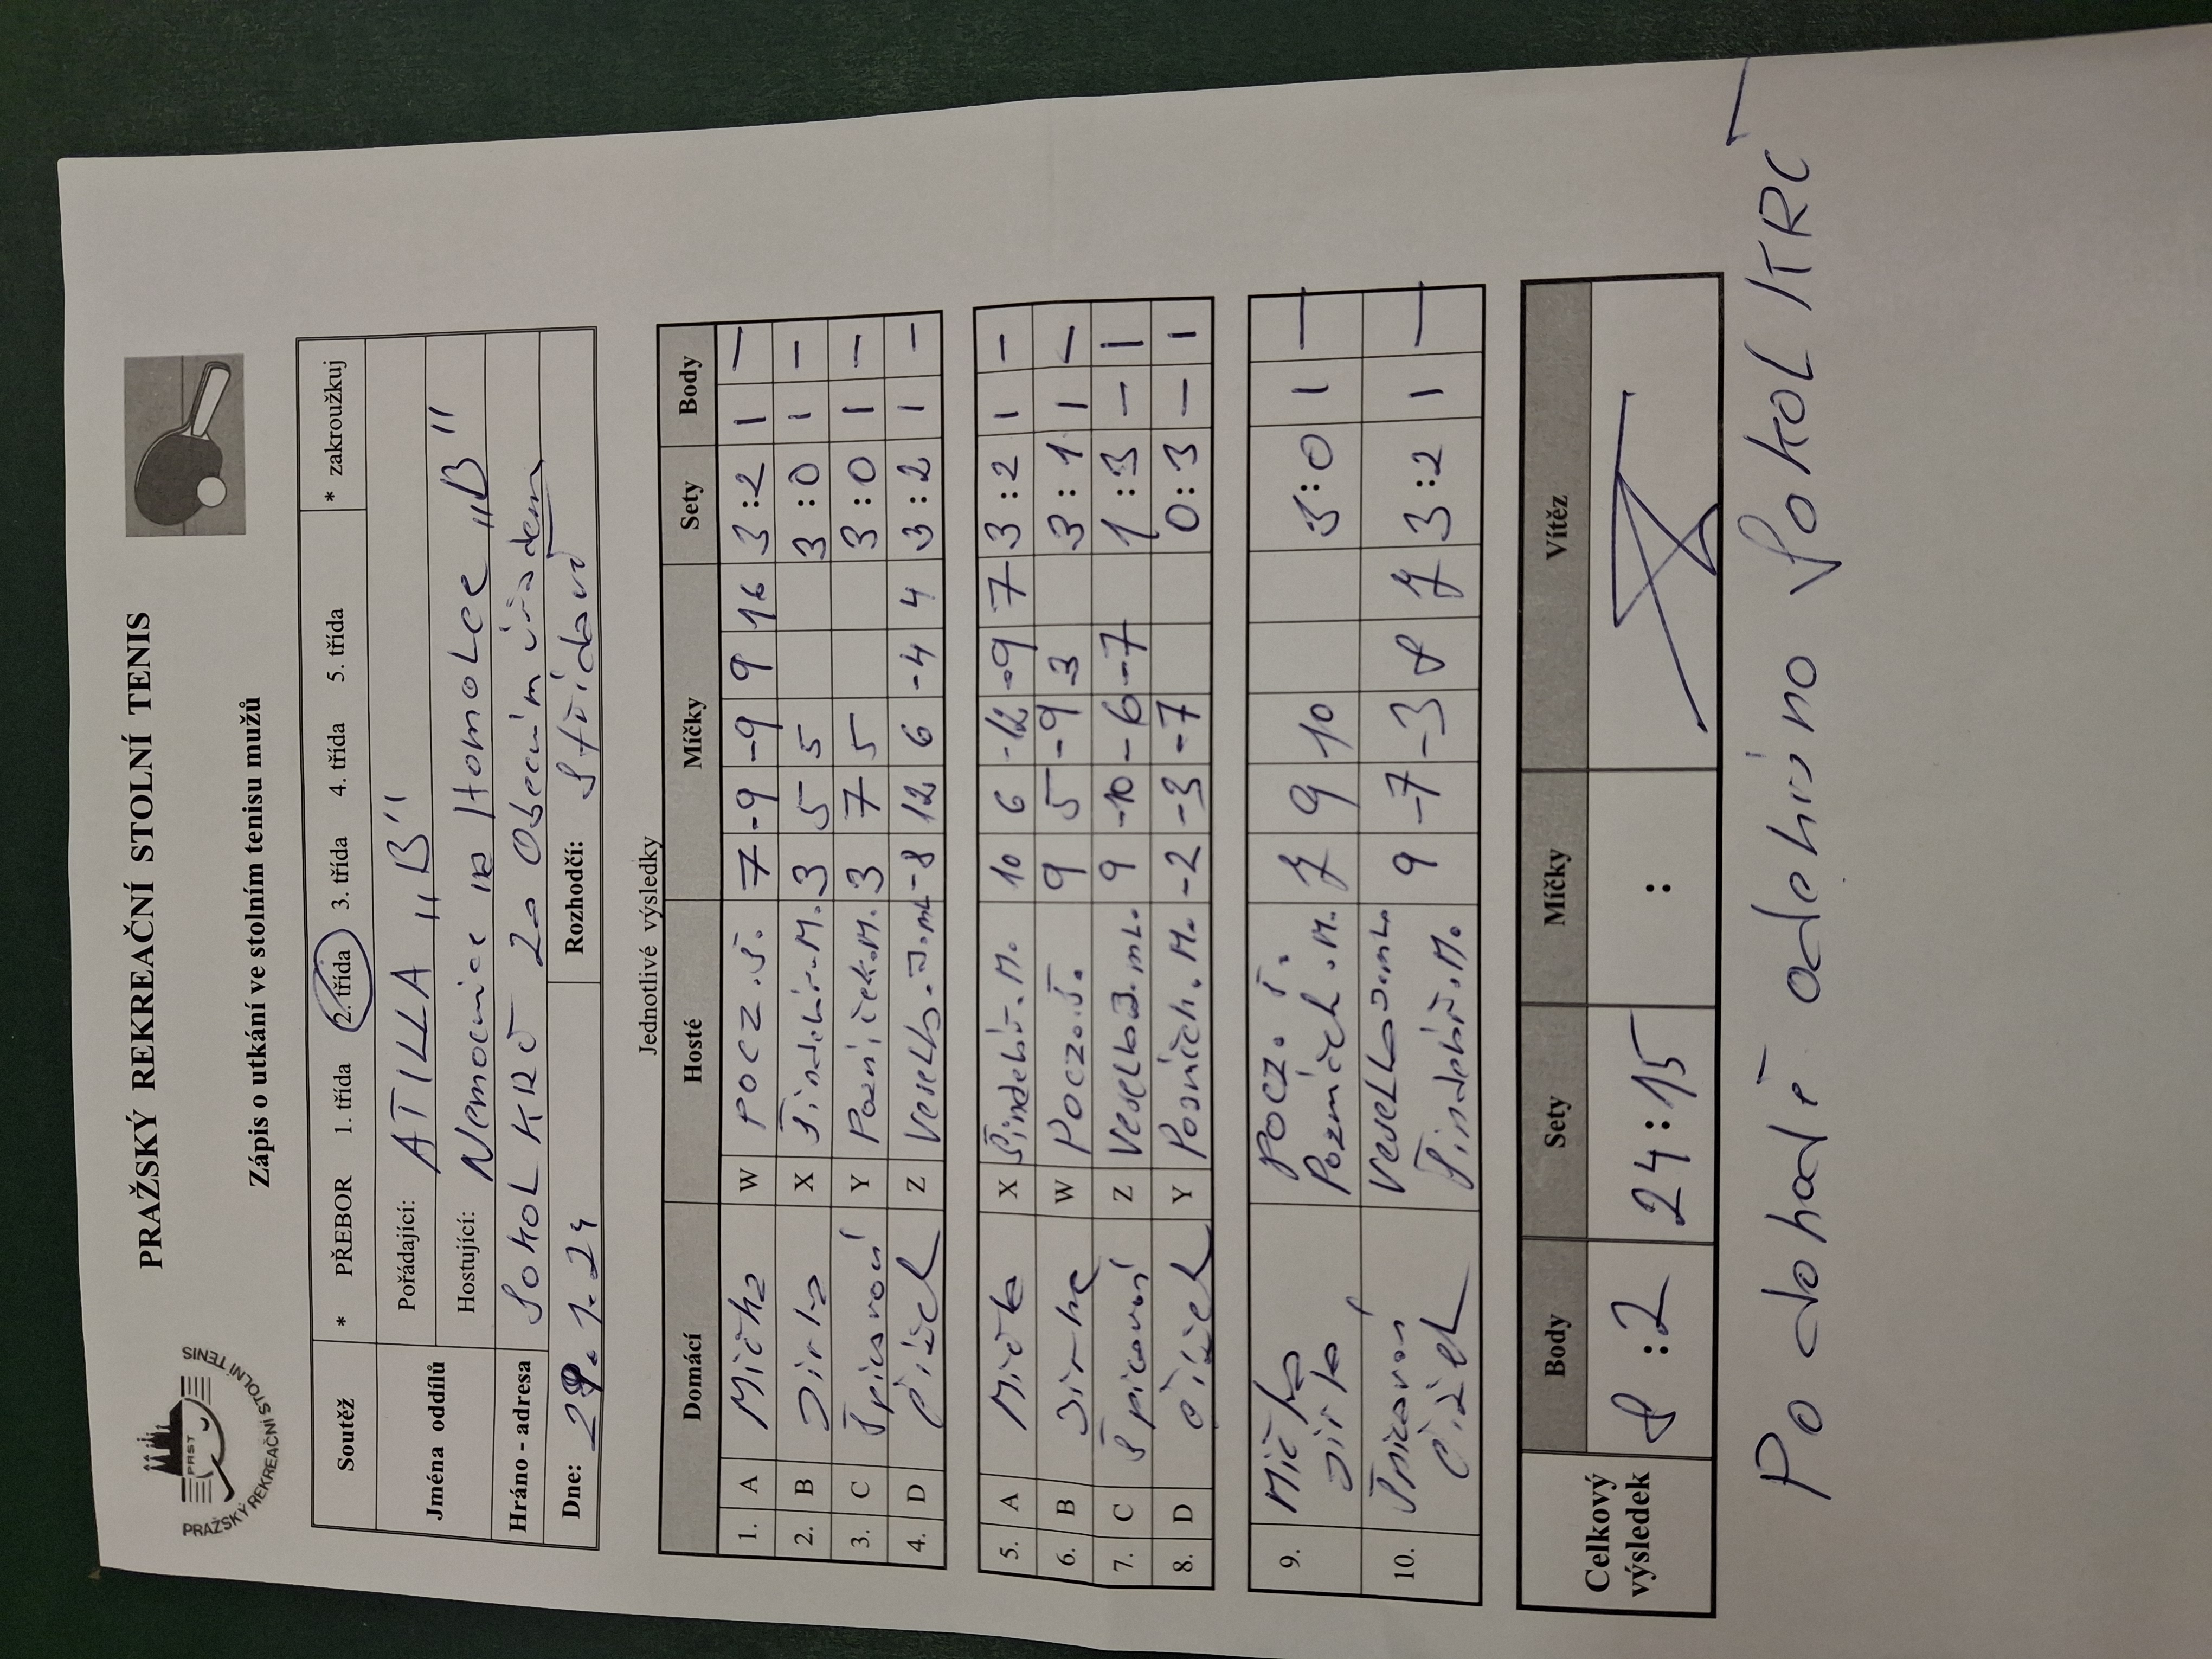 PRAŽSKÝ REKREAČNÍ STOLNÍ TENIS
PRST
PRAŽSKÝ REKREAČNÍ STOLNÍ TENIS
Zápis o utkání ve stolním tenisu mužů
Soutěž * PŘEBOR 1. třída 2. třída 3. třída 4. třída 5. třída * zakroužkuj
Jména oddílů Pořádající: ATILLA "B"
Hostující: Nemocnice na Homolce "B"
Hráno - adresa Sokol Krč za Obecním úřadem
Dne: 29.1.24 Rozhodčí: Střídavě
Jednotlivé výsledky
Domácí Hosté Míčky Sety Body
1. A Mička W POCZ.Š. 7 -9 -9 9 16 3:2 1 –
2. B Jirka X Šindelář.M. 3 5 5 3:0 1 –
3. C Špicarovi Y M. 3 7 5 3:0 1 –
4. D Čížek Z Veselka.J.ml -8 12 6 -4 4 3:2 1 –
5. A Mička X Šindelář.M. 10 6 -12 -9 7 3:2 1 –
6. B Jirka W Pocz.Š. 9 5 -9 3 3:1 1 –
7. C Z Veselka J.ml. 9 -10 -6 -7 1:3 – 1
8. D Čížek Y M. -2 -3 -7 0:3 – 1
9. Mička POCZ. Š. 7 9 10 3:0 1 –
Jirka M.
10. Veselka J.ml. 9 -7 -3 8 7 3:2 1 –
Čížek Šindelář.M.
Celkový výsledek Body Sety Míčky Vítěz
8:2 24:15 :
Po dohodě odehráno Sokol KRČ